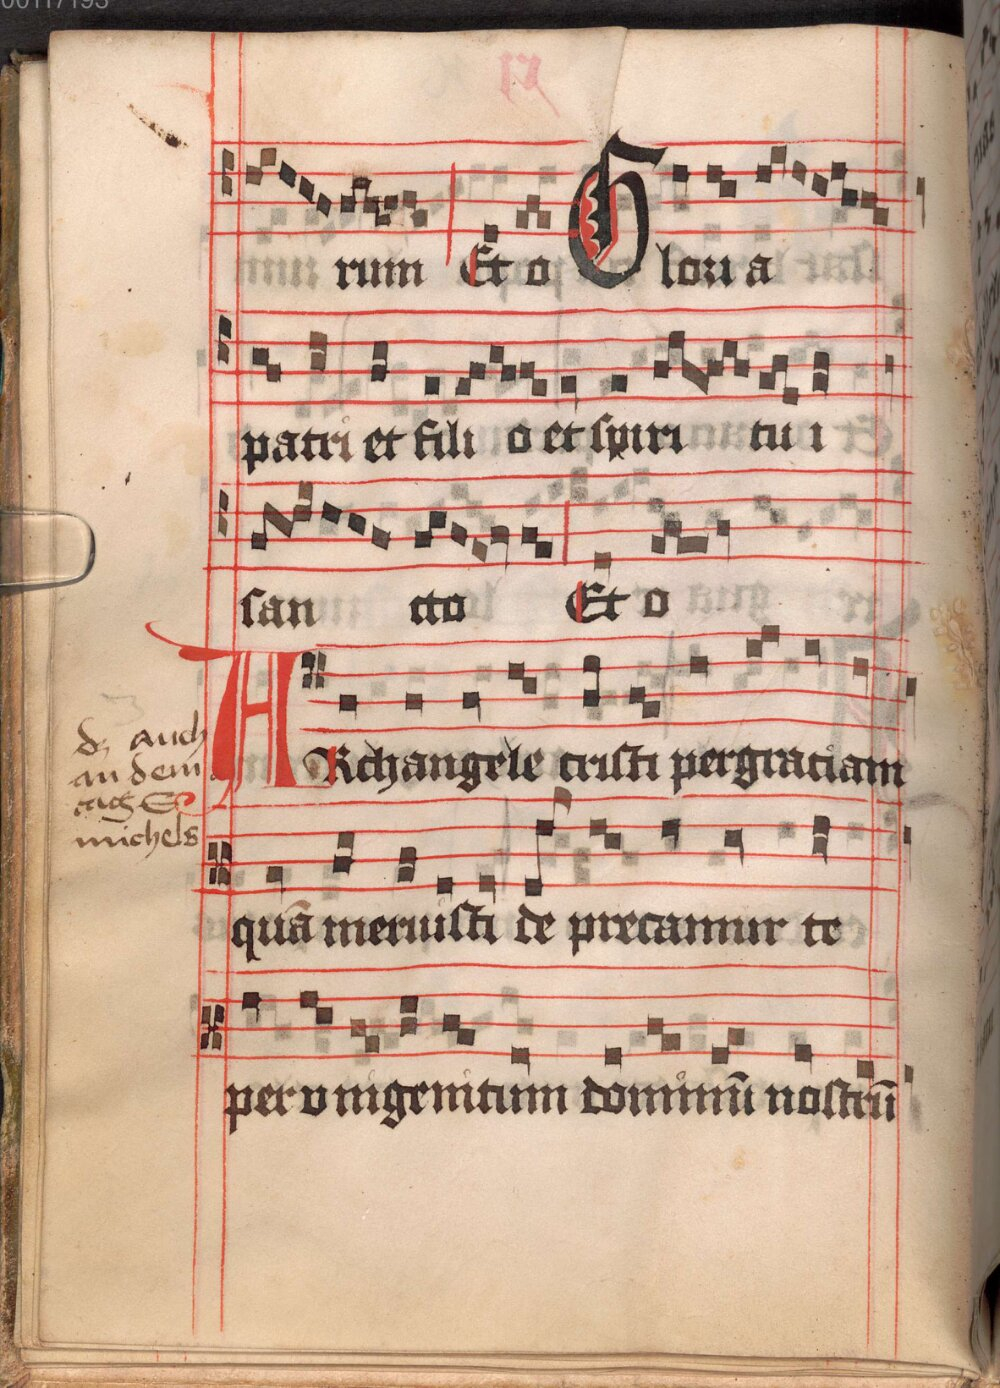 00117193
rum Et o Gloria
patri et fili o et spiri tu i
san cto Et o
ARchangele cristi per gratiam
quā meruisti de precamur te
per v nigenitum dominū nostrū
dz auch
an dem
tag S
michels